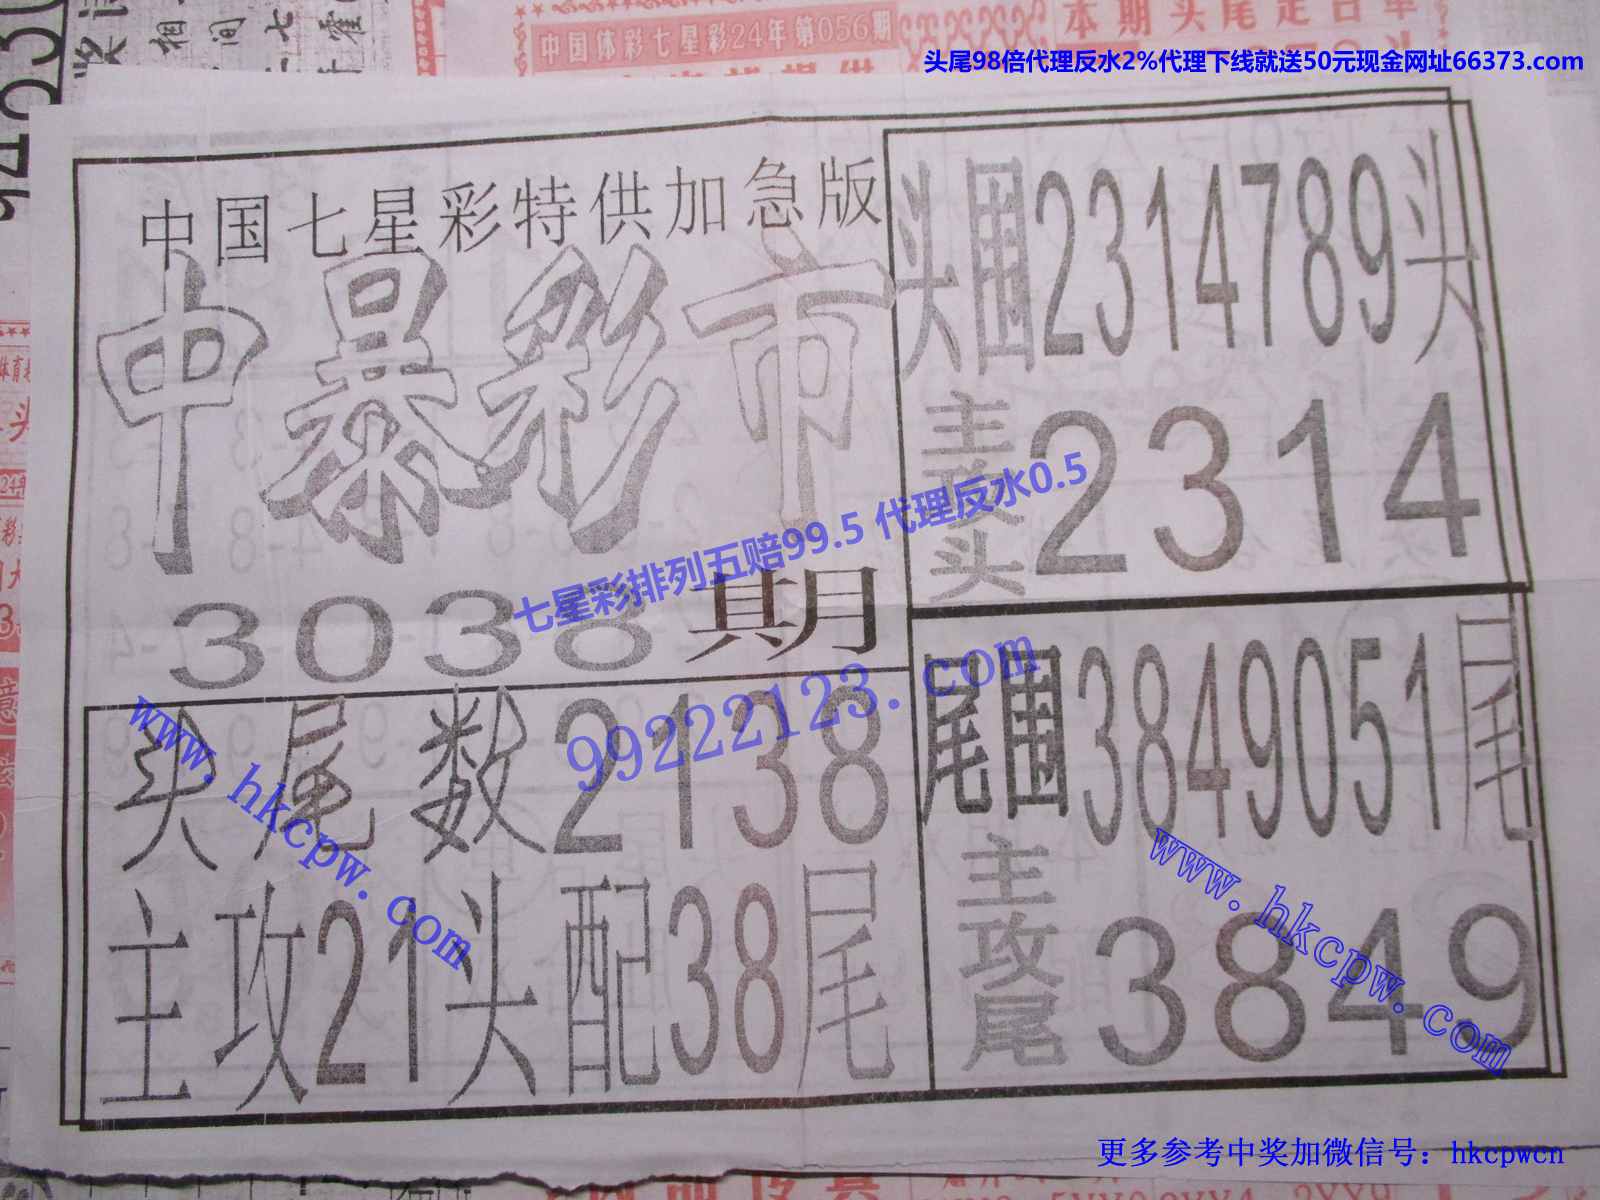 中国体彩七星彩24年第056期
本期头尾定日单
头尾98倍代理反水2%代理下线就送50元现金网址66373.com
中国七星彩特供加急版
中暴彩市
3038期
头尾数2138
主攻21头配38尾
头围2314789头
主攻头
2314
尾围3849051尾
主攻尾
3849
七星彩排列五赔99.5 代理反水0.5
99222123.com
www.hkcpw.com
www.hkcpw.com
更多参考中奖加微信号：hkcpwcn